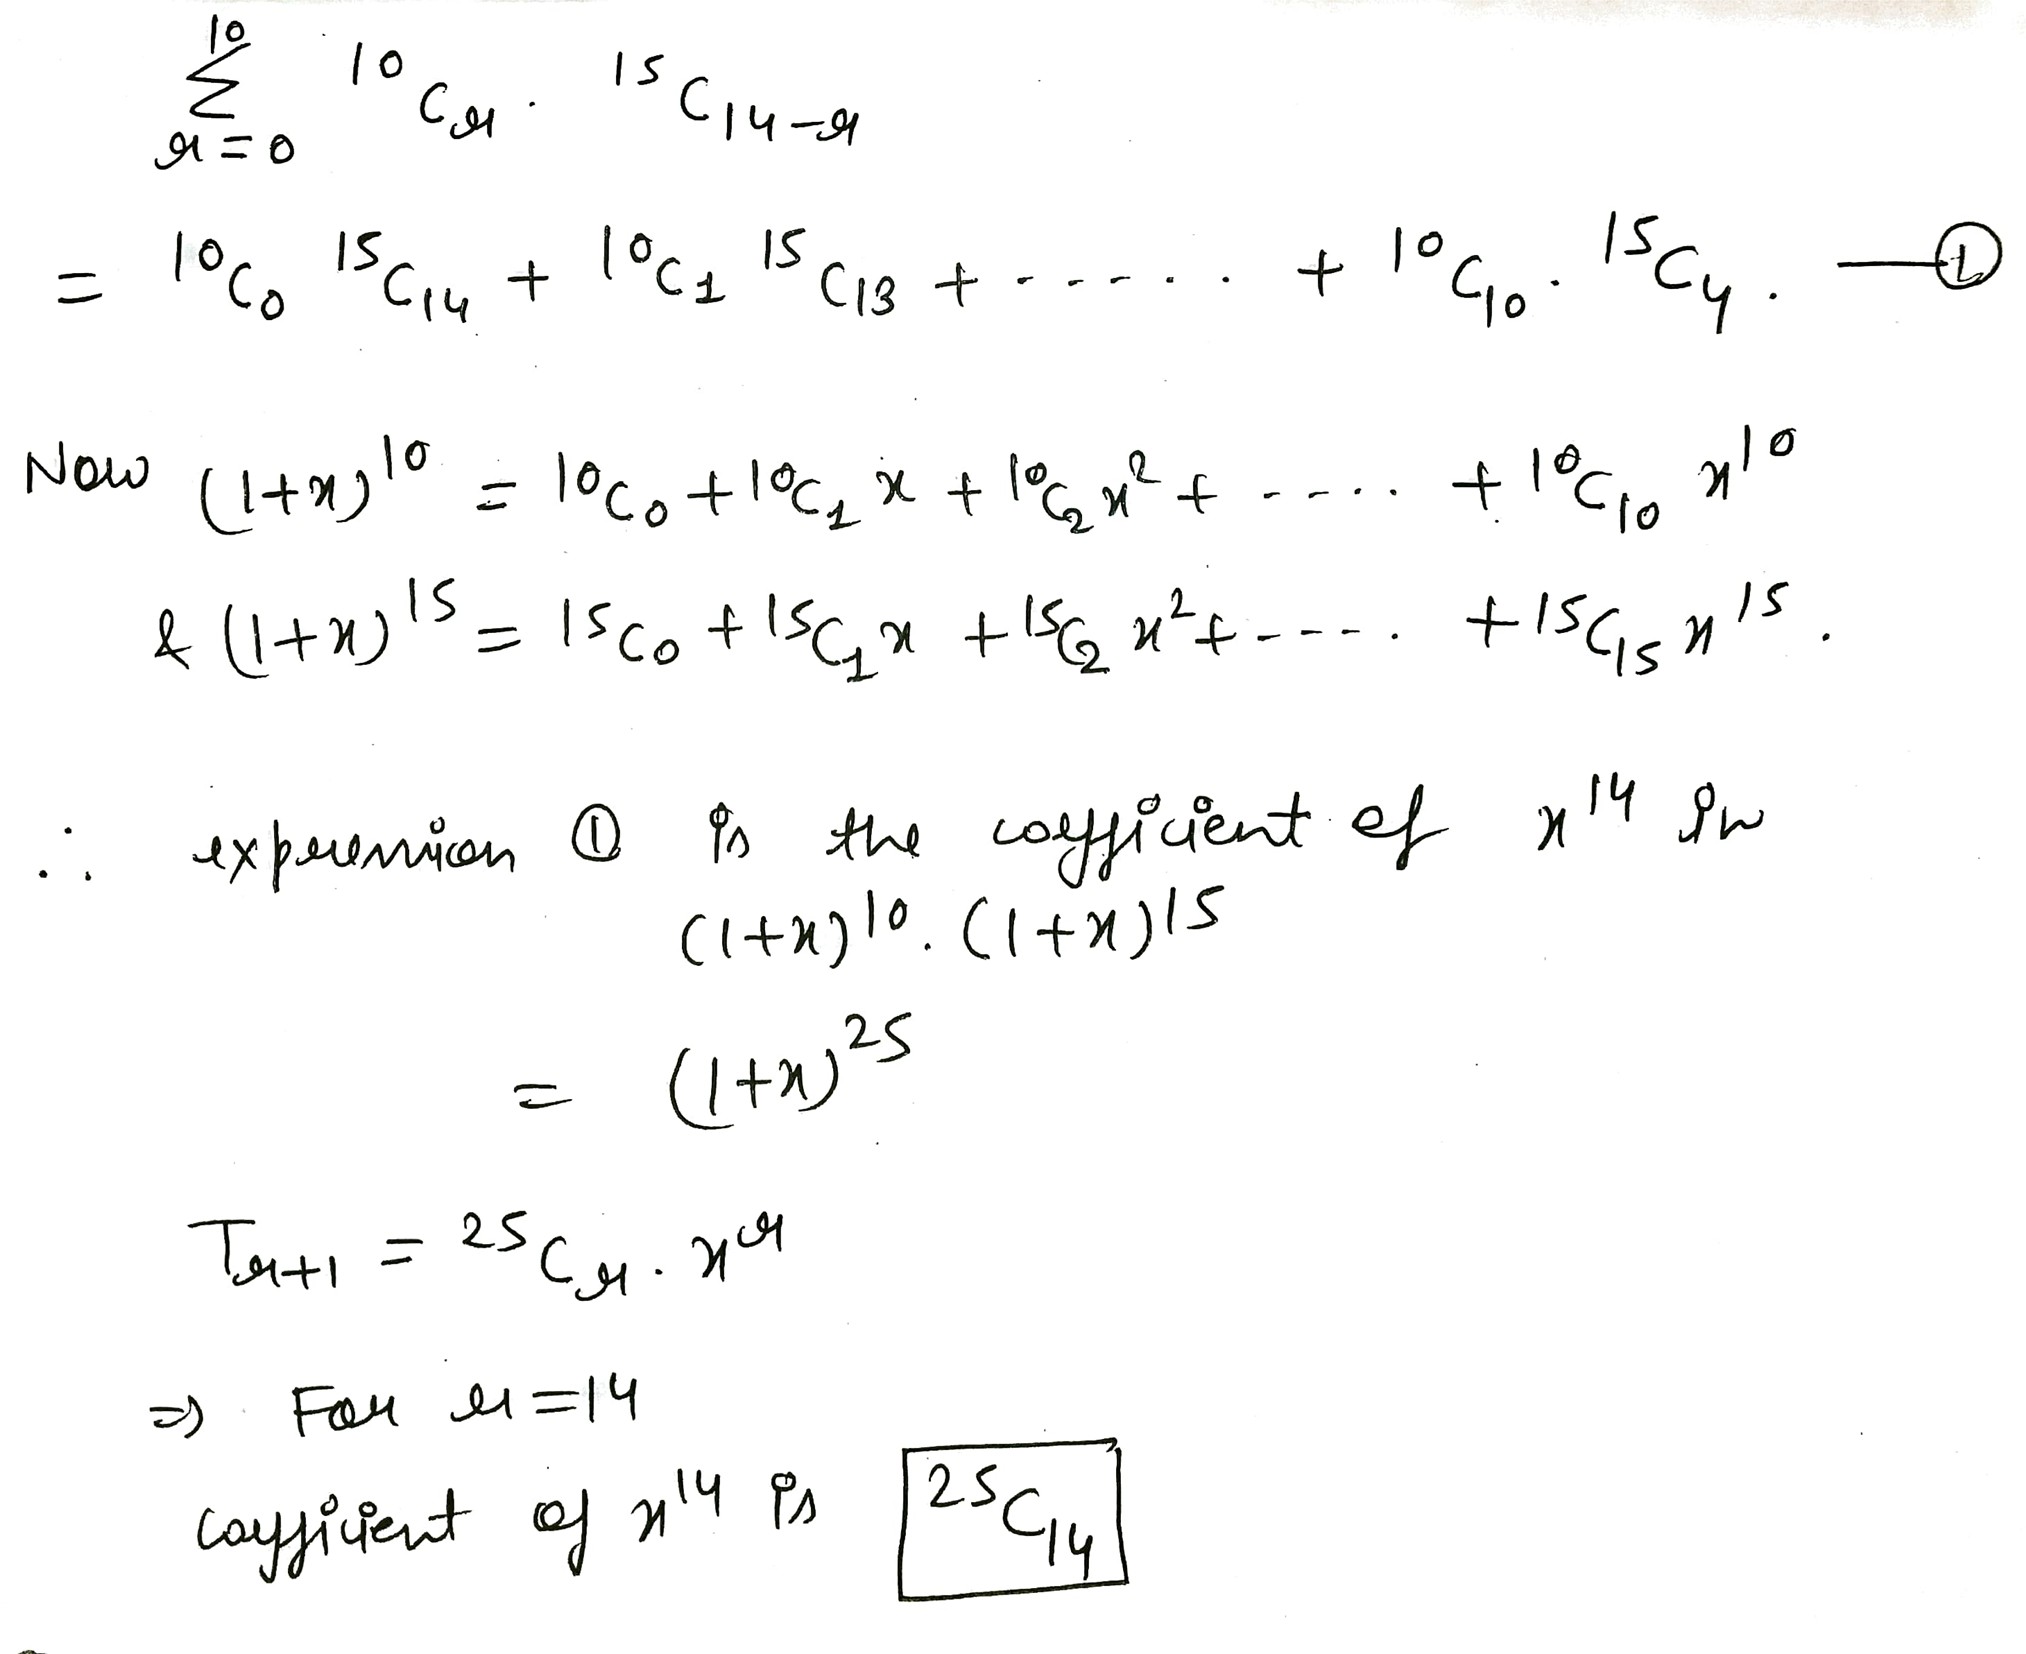 \sum_{r=0}^{10} {}^{10}C_r \cdot {}^{15}C_{14-r}
= {}^{10}C_0 {}^{15}C_{14} + {}^{10}C_1 {}^{15}C_{13} + ------ + {}^{10}C_{10} \cdot {}^{15}C_4 . —①
Now (1+x)^{10} = {}^{10}C_0 + {}^{10}C_1 x + {}^{10}C_2 x^2 + ----- + {}^{10}C_{10} x^{10}
& (1+x)^{15} = {}^{15}C_0 + {}^{15}C_1 x + {}^{15}C_2 x^2 + ----- + {}^{15}C_{15} x^{15} .
∴ expression ① is the coefficient of x^{14} in
(1+x)^{10} . (1+x)^{15}
= (1+x)^{25}
T_{r+1} = {}^{25}C_r . x^r
=> For r=14
coefficient of x^{14} is {}^{25}C_{14}